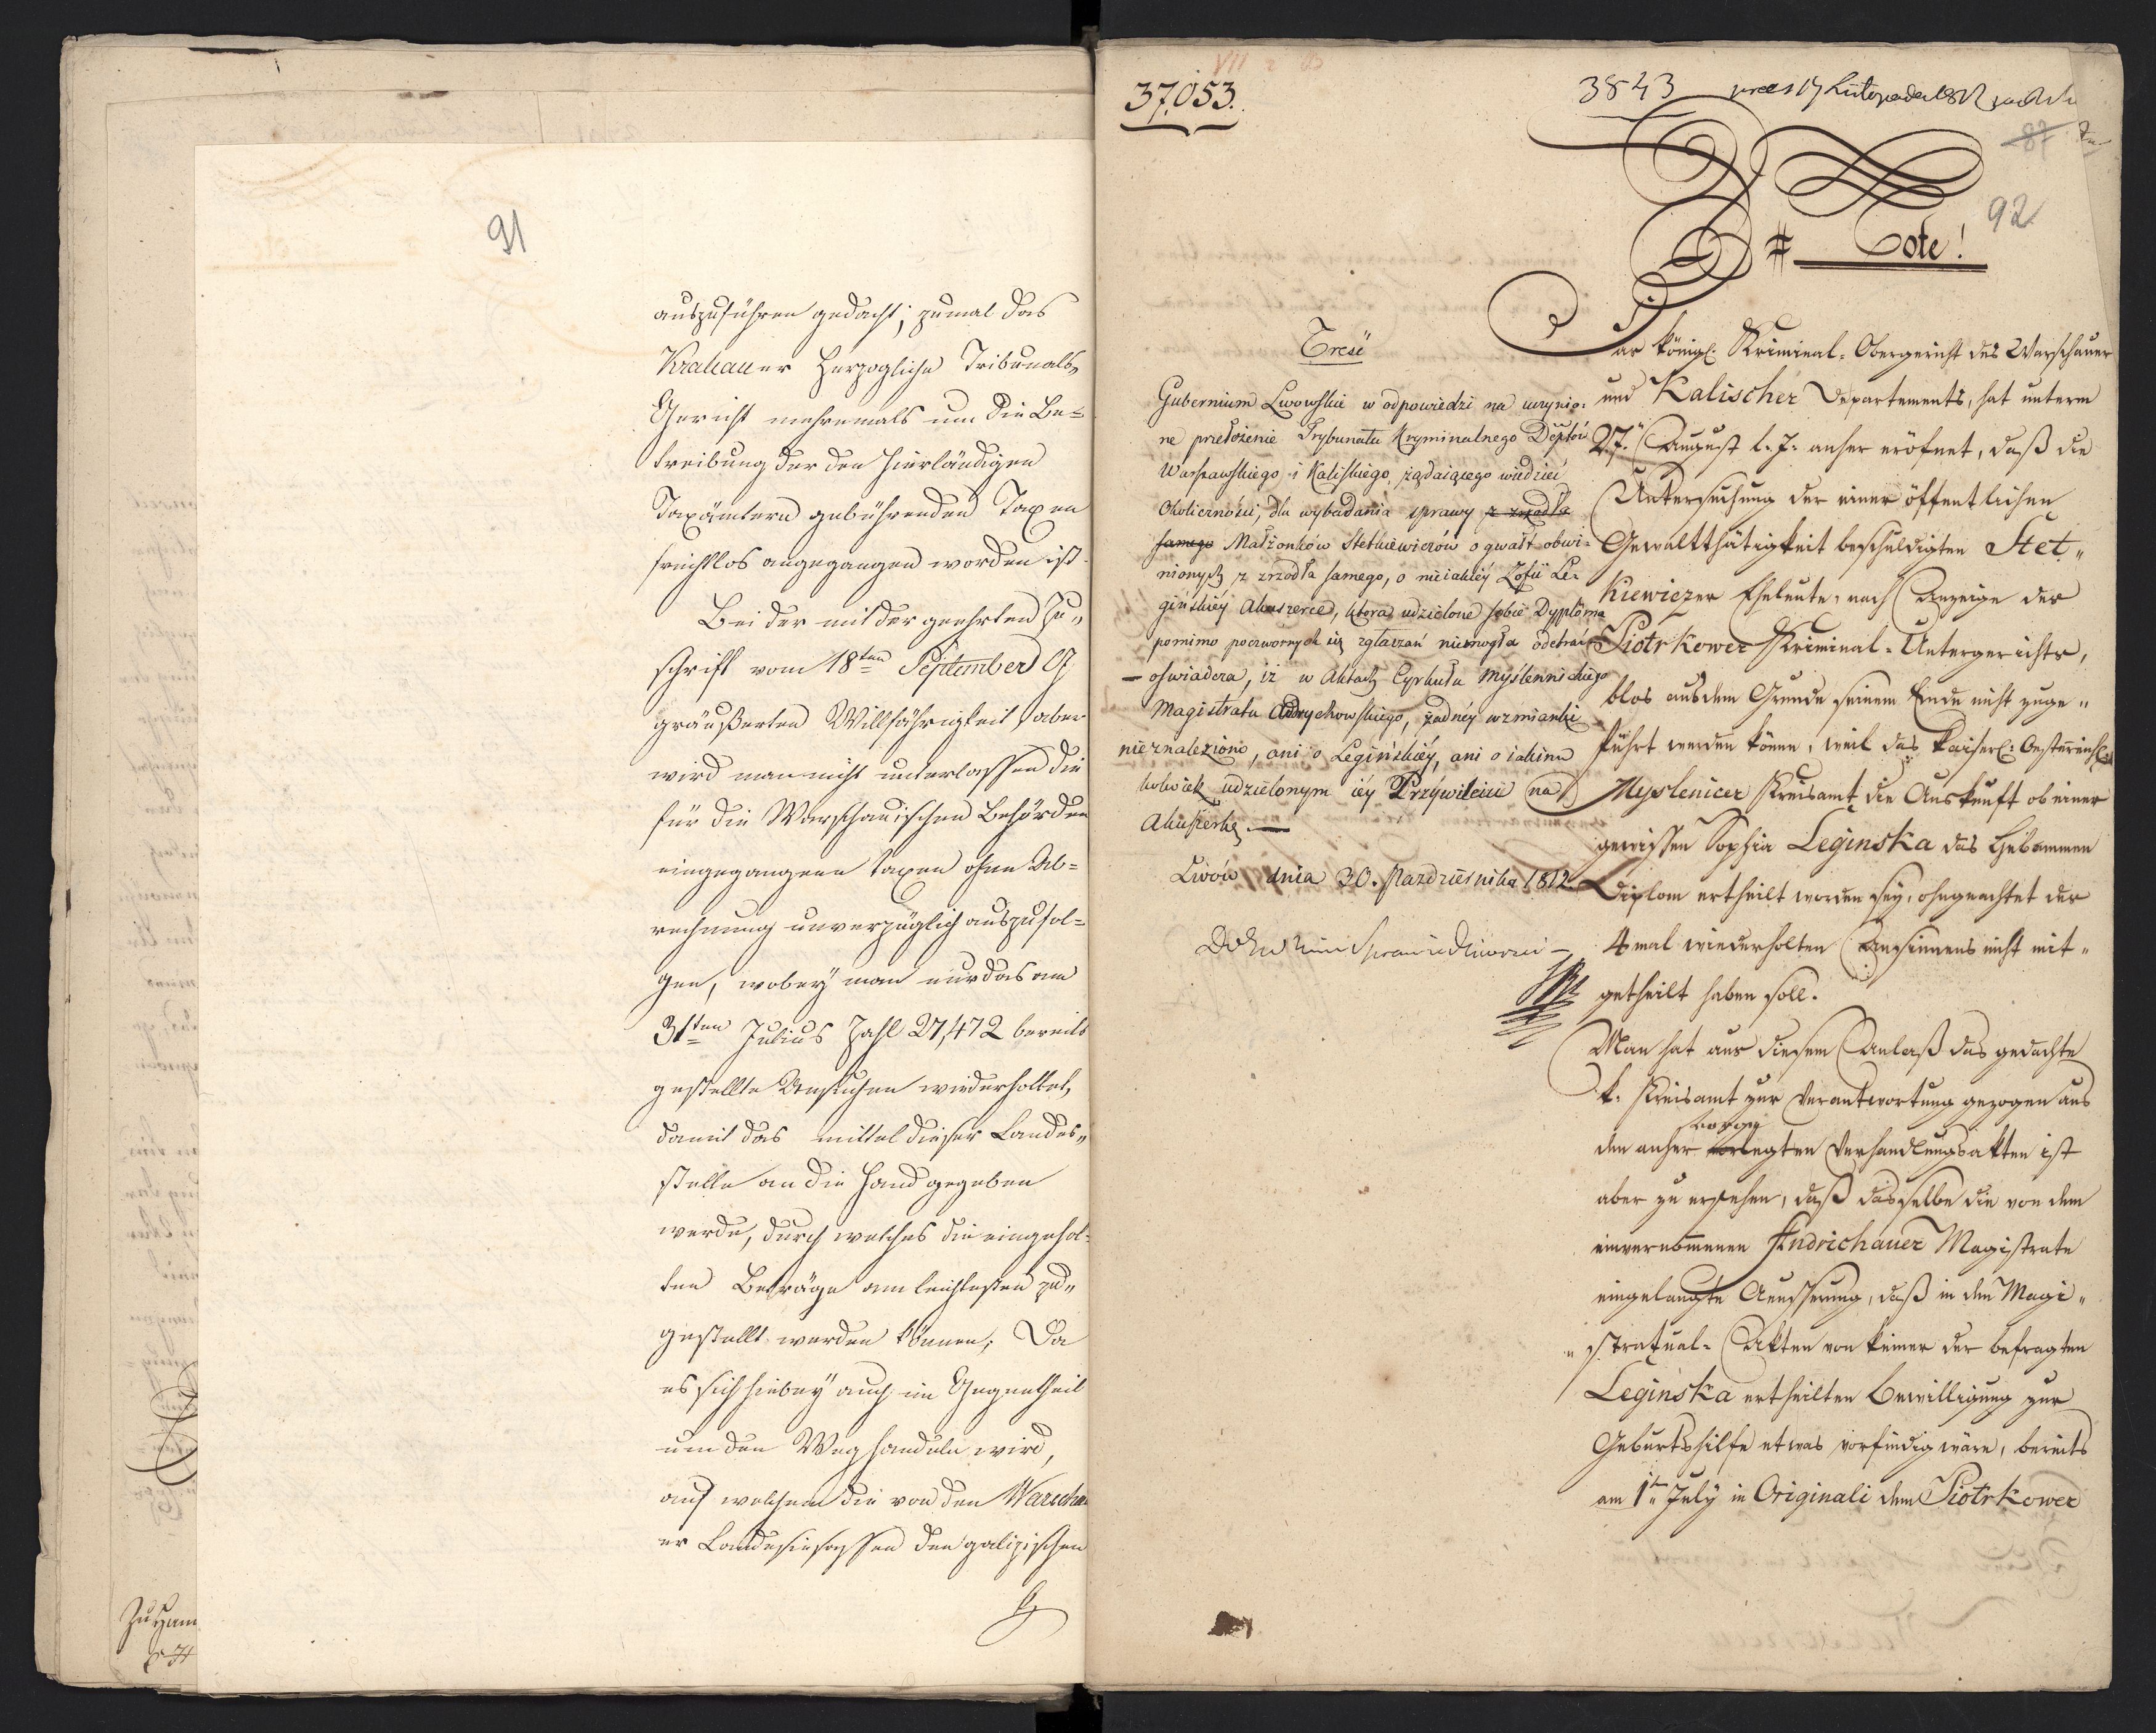 91
auszuführen gedacht; zumal das
Krakauer Herzogliche Tribunals„
Gericht mehremals um die Be=
treibung der den hierländigen
Taxämtern gebührenden Taxen
fruchtlos angegangen worden ist.
Bei der mit der geehrten Zu„
schrift vom 18ten September
geäußerten Willfährigkeit, aber
wird man nicht unterlassen die
für die Warschauischen Behörden
eingegangene Taxen ohne Ab=
rechnung unverzüglich auszufol=
gen, wobey man nur das am
31ten Julius Zahl 27,472 bereits
gestellte Ansuchen wiederhollet,
damit das mittel dieser Landes„
stelle an die Hand gegeben
werde, durch welches die eingehol=
ten Beträge am leichtesten zu„
gestellt werden können; Da
es sich hiebey auch im Gegentheil
um den Weg handeln wird,
auf welchem die von den Warschau
er Landesinsassen den galizischen
37,053.
3843 praes 17 Listopada 1812
87
92
Note!
Treść
Gubernium Lwowskie w odpowiedzi na uczynio:
ne przełożenie Trybunału Kryminalnego Deptów
Warszawskiego i Kaliskiego, żądaiącego wiedzieć
Okoliczności, dla wybadania sprawy z zrzodła
samego Małżonków Stetkiewiczów o gwałt obwi=
nionych z zrzodła samego, o nieiakiéy Zofii Le=
gińskiéy Akuszerce, ktora udzielone sobie Dyploma
pomimo poczwornych się zgłaszań niemogła odebrać
— oświadcza, iż w Aktach Cyrkułu Myślennickiego
Magistratu Andrychowskiego, żadnéy wzmianki
nieznaleziono, ani o Legińskiéy, ani o iakim
kolwiek udzielonym iéy Przywileiu na
Akuszerkę. —
Lwów dnia 30. Pazdziernika 1812
Das königl: Kriminal-Obergericht des Warschauer
und Kalischer Departements, hat unterm
27. August l. J. anher eröfnet, daß die
Untersuchung der einer öffentlichen
Gewaltthätigkeit beschuldigten Stet„
kiewiczer Eheleute, nach Anzeige des
Piotrkower Kriminal-Untergerichts,
blos aus dem Grunde seinem Ende nicht zuge„
führt werden könne, weil das kaiserl: Oesterreichl:
Myslenicer Kreisamt die Auskunft ob einer
gewissen Sophia Leginska das Hebammen
Diplom ertheilt worden sey, ohngeachtet des
4mal wiederholten Ansinnens nicht mit„
getheilt haben soll.
Man hat aus diesem Anlaß das gedachte
k. Kreisamt zur Verantwortung gezogen aus
den anher vorgelegten Verhandlungsakten ist
aber zu ersehen, daß dasselbe die von dem
einvernommenen Andrichauer Magistrate
eingelangte Aeusserung, daß in den Magi„
„stratual-Akten von keiner der befragten
Leginska ertheilten Bewilligung zur
Geburtshilfe etwas vorfindig wäre, bereits
am 1ten July in Originali dem Piotrkower